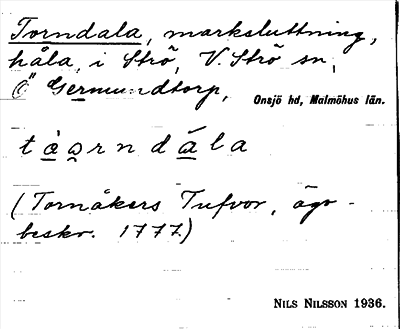 Torndala, marksluttning,
håla, i Strö, V. Strö sn,
Ö Germundtorp, Onsjö hd, Malmöhus län.
tàa̯rndála
(Tornåkers Tufvor, ägo-
beskr. 1777)
NILS NILSSON 1936.